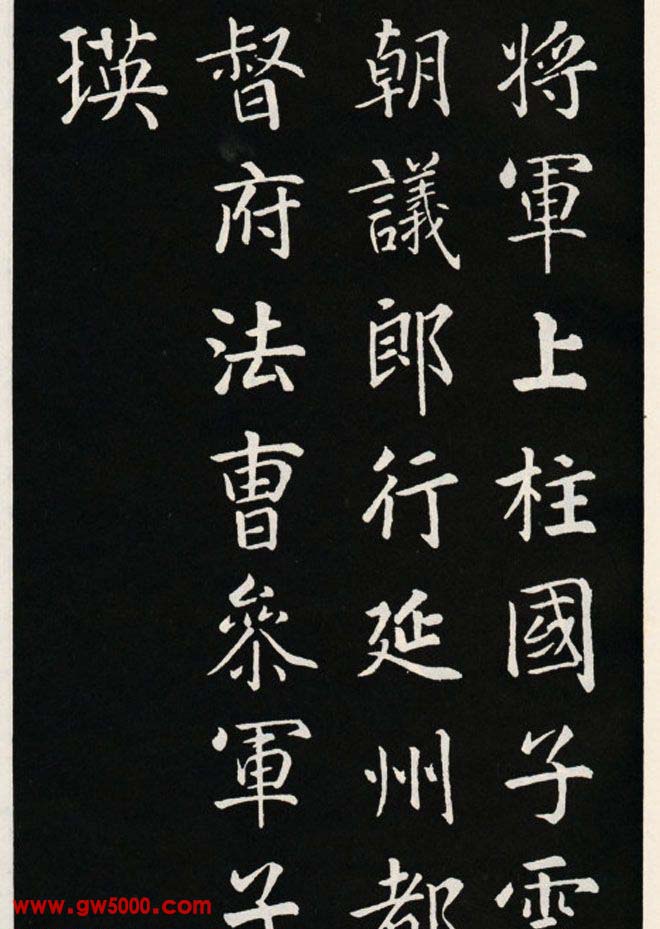 將軍上柱國子雲
朝議郎行延州都
督府法曹參軍子
瑛
www.gw5000.com